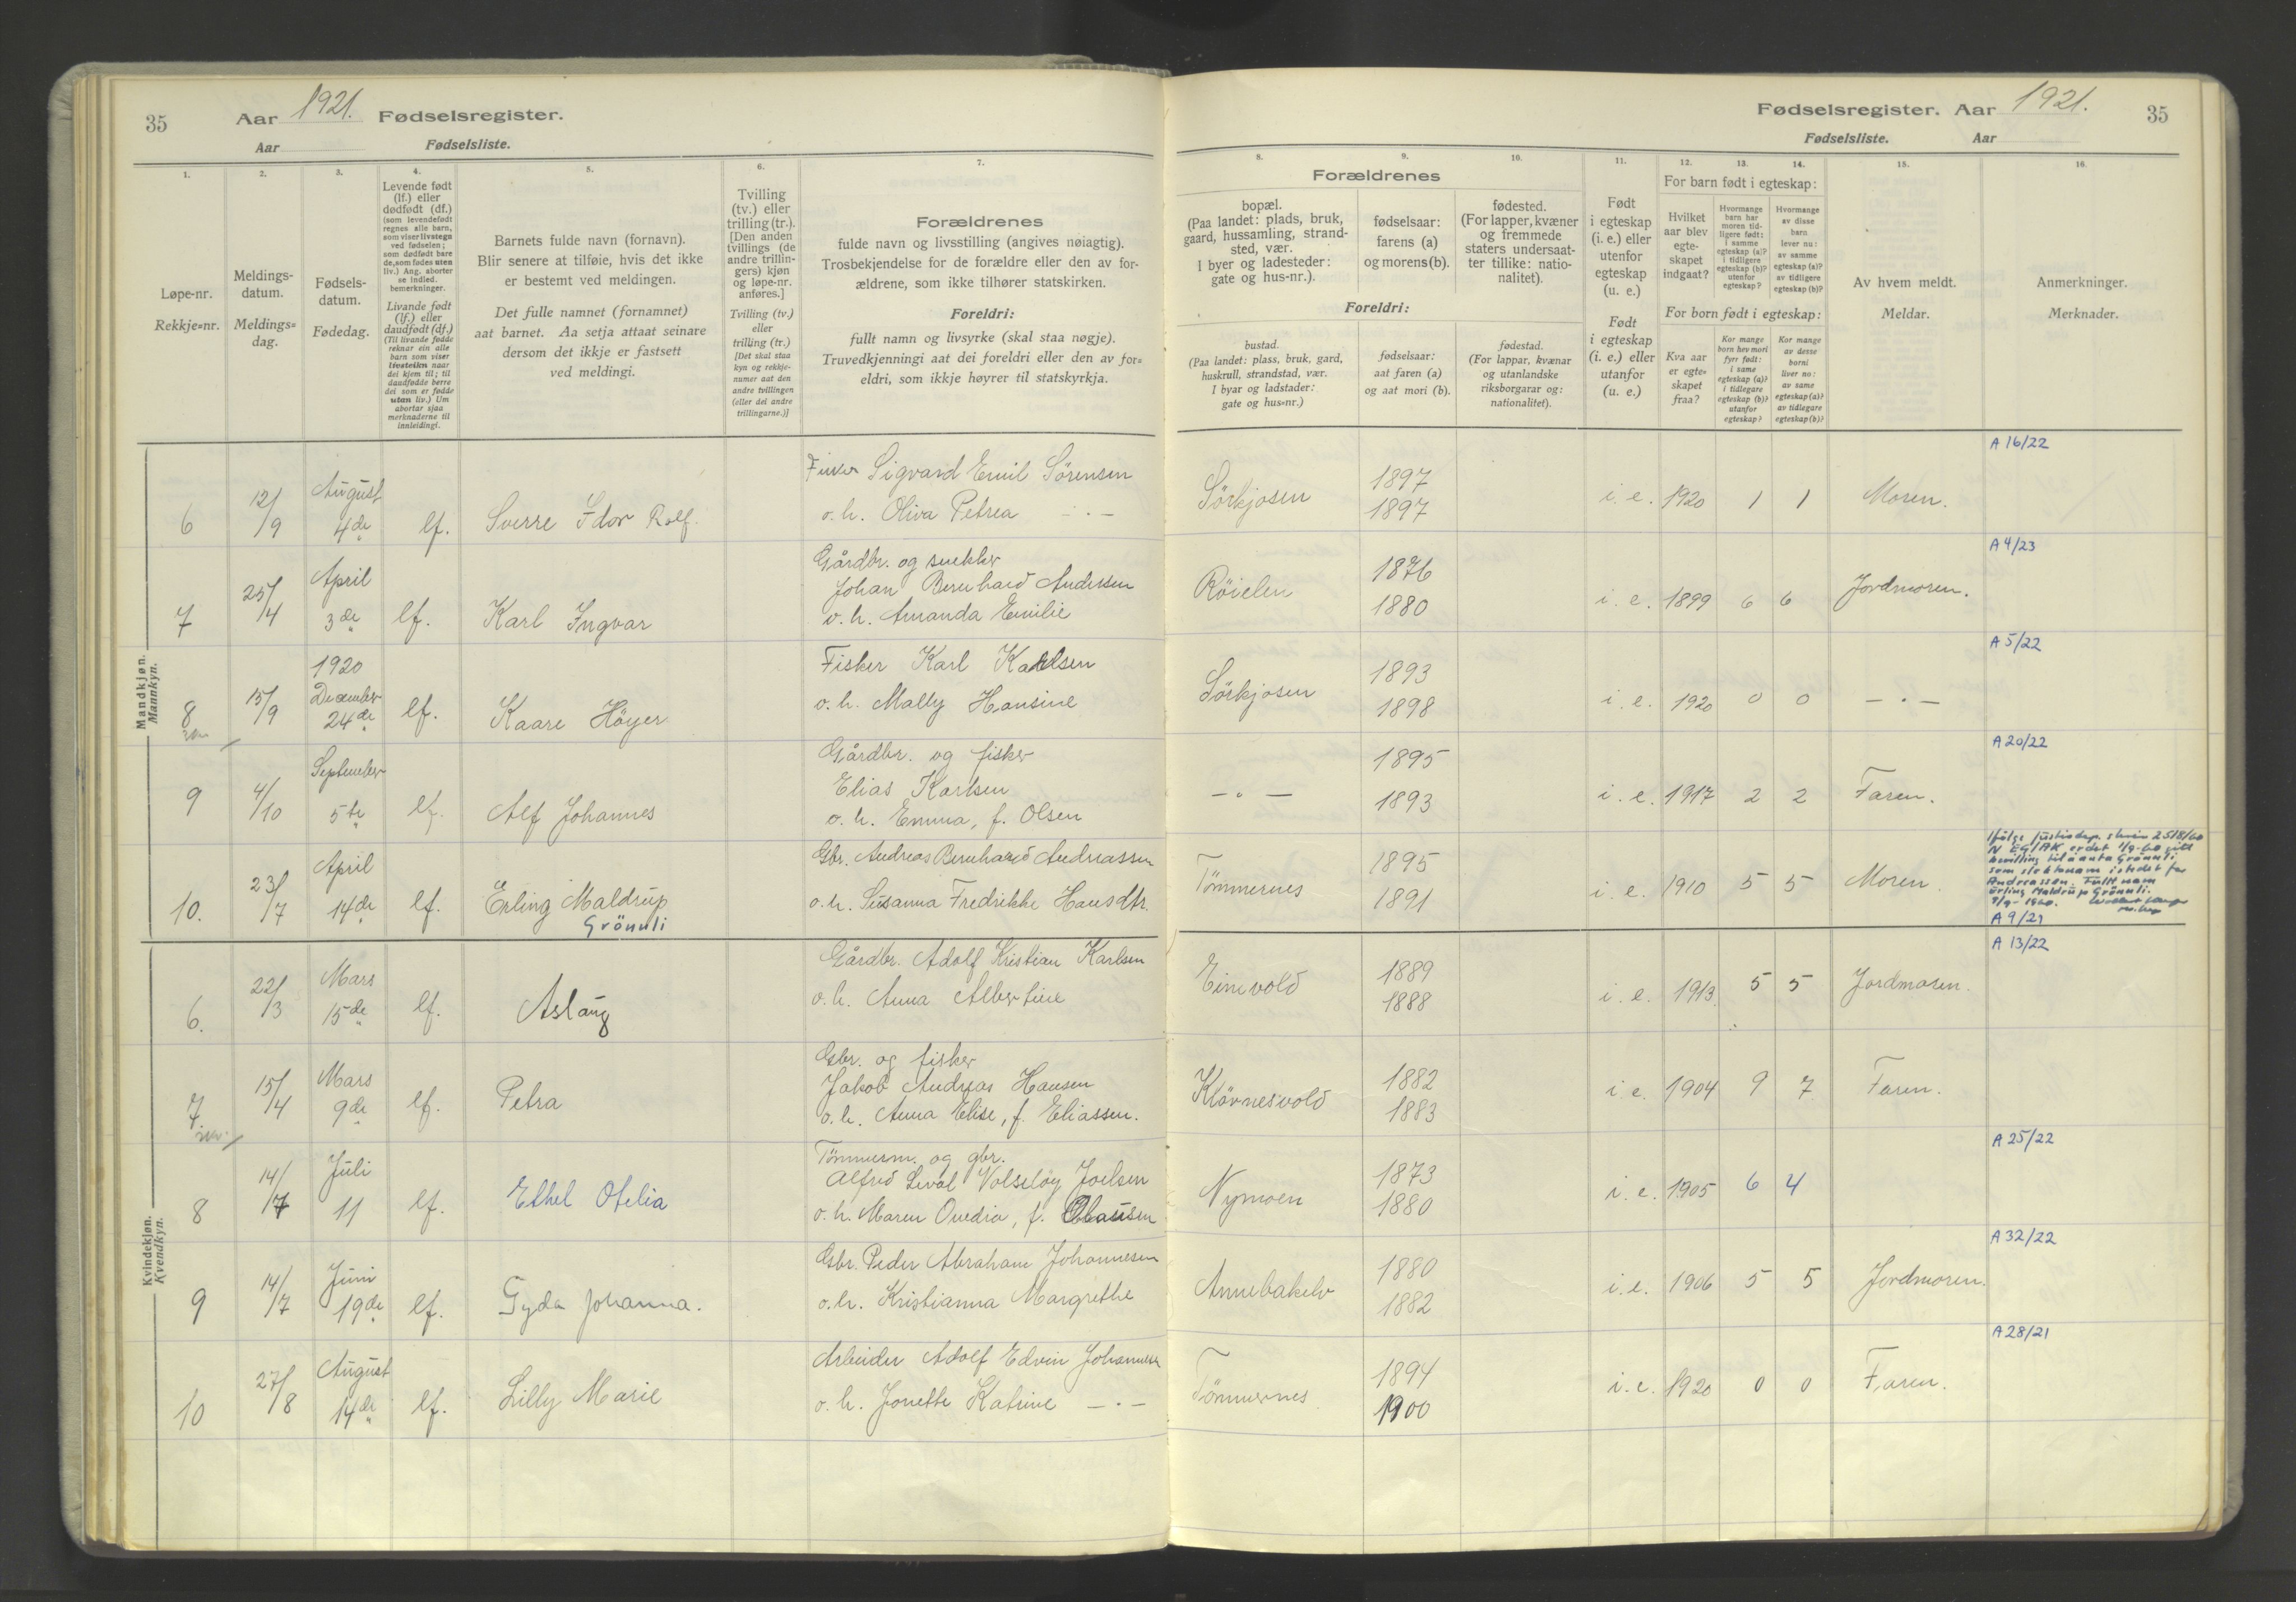 35
Aar 1921. Fødselsregister.
Aar Fødselsliste.
1.
Løpe-nr.
Rekkje=nr.
2.
Meldings-
datum.
Meldings=
dag.
3.
Fødsels-
datum.
Fødedag.
4.
Levende født
(lf.) eller
dødfødt (df.)
(som levendefødt
regnes alle barn,
som viser livstegn
ved fødselen;
som dødfødt bare
de, som fødes uten
liv.) Ang. aborter
se indled.
bemerkninger.
Livande født
(lf.) eller
daudfødt (df.)
(Til livande fødde
reknar ein alle
barn som viser
livsteikn naar
dei kjem til; til
daudfødde berre
dei som er fødde
utan liv.) Um
abortar sjaa
merknaderne til
innleidingi.
5.
Barnets fulde navn (fornavn).
Blir senere at tilføie, hvis det ikke
er bestemt ved meldingen.
Det fulle namnet (fornamnet)
aat barnet. Aa setja attaat seinare
dersom det ikkje er fastsett
ved meldingi.
6.
Tvilling
(tv.) eller
trilling (tr.).
[Den anden
tvillings (de
andre trillin-
gers) kjøn
og løpe-nr.
anføres.]
Tvilling (tv.)
eller
trilling (tr.)
[Det skal staa
kyn og rekkje-
numer aat den
andre tvillingen
(eller dei andre
trillingarne.)]
7.
Forældrenes
fulde navn og livsstilling (angives nøiagtig).
Trosbekjendelse for de forældre eller den av for-
ældrene, som ikke tilhører statskirken.
Foreldri:
fullt namn og livsyrke (skal staa nøgje).
Truvedkjenningi aat dei foreldri eller den av for=
eldri, som ikkje høyrer til statskyrkja.
Fødselsregister. Aar 1921.
35
Fødselsliste. Aar
Forældrenes
8.
bopæl.
(Paa landet: plads, bruk,
gaard, hussamling, strand-
sted, vær.
I byer og ladesteder:
gate og hus-nr.).
9.
fødselsaar:
farens (a)
og morens (b).
10.
fødested.
(For lapper, kvæner
og fremmede
staters undersaat-
ter tillike: natio-
nalitet).
Foreldri:
bustad.
(Paa landet: plass, bruk, gard,
huskrull, strandstad, vær.
I byar og ladstader:
gate og hus=nr.)
fødselsaar:
aat faren (a)
og aat mori (b).
fødestad.
(For lappar, kvænar
og utanlandske
riksborgarar og:
nationalitet).
11.
Født
i egteskap
(i. e.) eller
utenfor
egteskap
(u. e.)
Født
i egteskap
(i. e.) eller
utanfor
egteskap
(u. e.)
12. 13. 14.
For barn født i egteskap:
Hvilket
aar blev
egte-
skapet
indgaat?
Hvormange
barn har
moren tid-
ligere født:
i samme
egteskap (a)?
i tidligere
egteskap (b)?
utenfor
egteskap?
Hvormange
av disse
barn
lever nu:
av samme
egteskap (a)?
av tidligere
egteskap (b)?
For born født i egteskap:
Kva aar
er egte=
skapet
fraa?
Kor mange
born hev mori
fyrr født:
i same
egteskap (a)?
i tidlegare
egteskap (b)?
utanfor
egteskap?
Kor mange
av desse
borni
liver no:
av same
egteskap (a)?
av tidlegare
egteskap (b)?
15.
Av hvem meldt.
Meldar.
16.
Anmerkninger.
Merknader.
Mandkjøn.
Mannkyn.
6 12/9 August 4de lf. Sverre Idor Rolf. Fisker Sigvard Emil Sørensen
o. h. Oliva Petrea — " —
Sörkjosen 1897 1897 i. e. 1920 1 1 Moren. A 16/22
7 25/4 April 3de lf. Karl Ingvar Gårdbr. og snekker
Johan Bernhard Andersen
o. h. Amanda Emilie
Röielen 1876 1880 i. e. 1899 6 6 Jordmoren. A 4/23
8 15/9 1920 December 24de lf. Kaare Höyer Fisker Karl Karlsen
o. h. Mally Hansine
Sörkjosen 1893 1898 i. e. 1920 0 0 — " — A 5/22
9 4/10 September 5te lf. Alf Johannes Gårdbr. og fisker
Elias Karlsen
o. h. Emma, f. Olsen
— " — 1895 1893 i. e. 1917 2 2 Faren. A 20/22
10. 23/7 April 14de lf. Erling Maldrup
Grönnli
Gbr. Andreas Bernhard Andreassen
o. h. Susanna Fredrikke Hansdtr.
Tömmernes 1895 1891 i. e. 1910 5 5 Moren.
Ifølge justisdep. skriv 25/8/60
N EG/AK er det 1/9-60 gitt
bevilling til å anta Grønnli
som slektsnavn istedet for
Andreassen. Fullt navn
Erling Maldrup Grönnli.
9/9-1960.
A 9/21
Kvindekjøn.
Kvendkyn.
6. 22/3 Mars 15de lf. Aslaug Gårdbr. Adolf Kristian Karlsen
o. h. Anna Albertine
Einevold 1889 1888 i. e. 1913. 5 5 Jordmoren. A 13/22
7. 15/4 Mars 9de lf. Petra Gbr. og fisker
Jakob Andreas Hansen
o. h. Anna Elise, f. Eliassen.
Klövnesvold 1882 1883 i. e. 1904 9 7 Faren.
8 14/7 Juli 11 lf. Ethel Ofelia Tömmerm. og gbr.
Alfred Leval Volselöy Joelsen
o. h. Maren Ovedia, f. Olaussen
Nymoen 1873 1880 i. e. 1905 6 4 A 25/22
9 14/7 Juni 19de lf. Gyda Johanna. Gbr. Peder Abraham Johannesen
o. h. Kristianna Margrethe
Annebakelv 1880 1882 i. e. 1906 5 5 Jordmoren. A 32/22
10 27/8 August 14de lf. Lilly Marie Arbeider Adolf Edvin Johannesen
o. h. Jonette Katrine — " —
Tömmernes 1894 1900 i. e. 1920 0 0 Faren. A 28/21